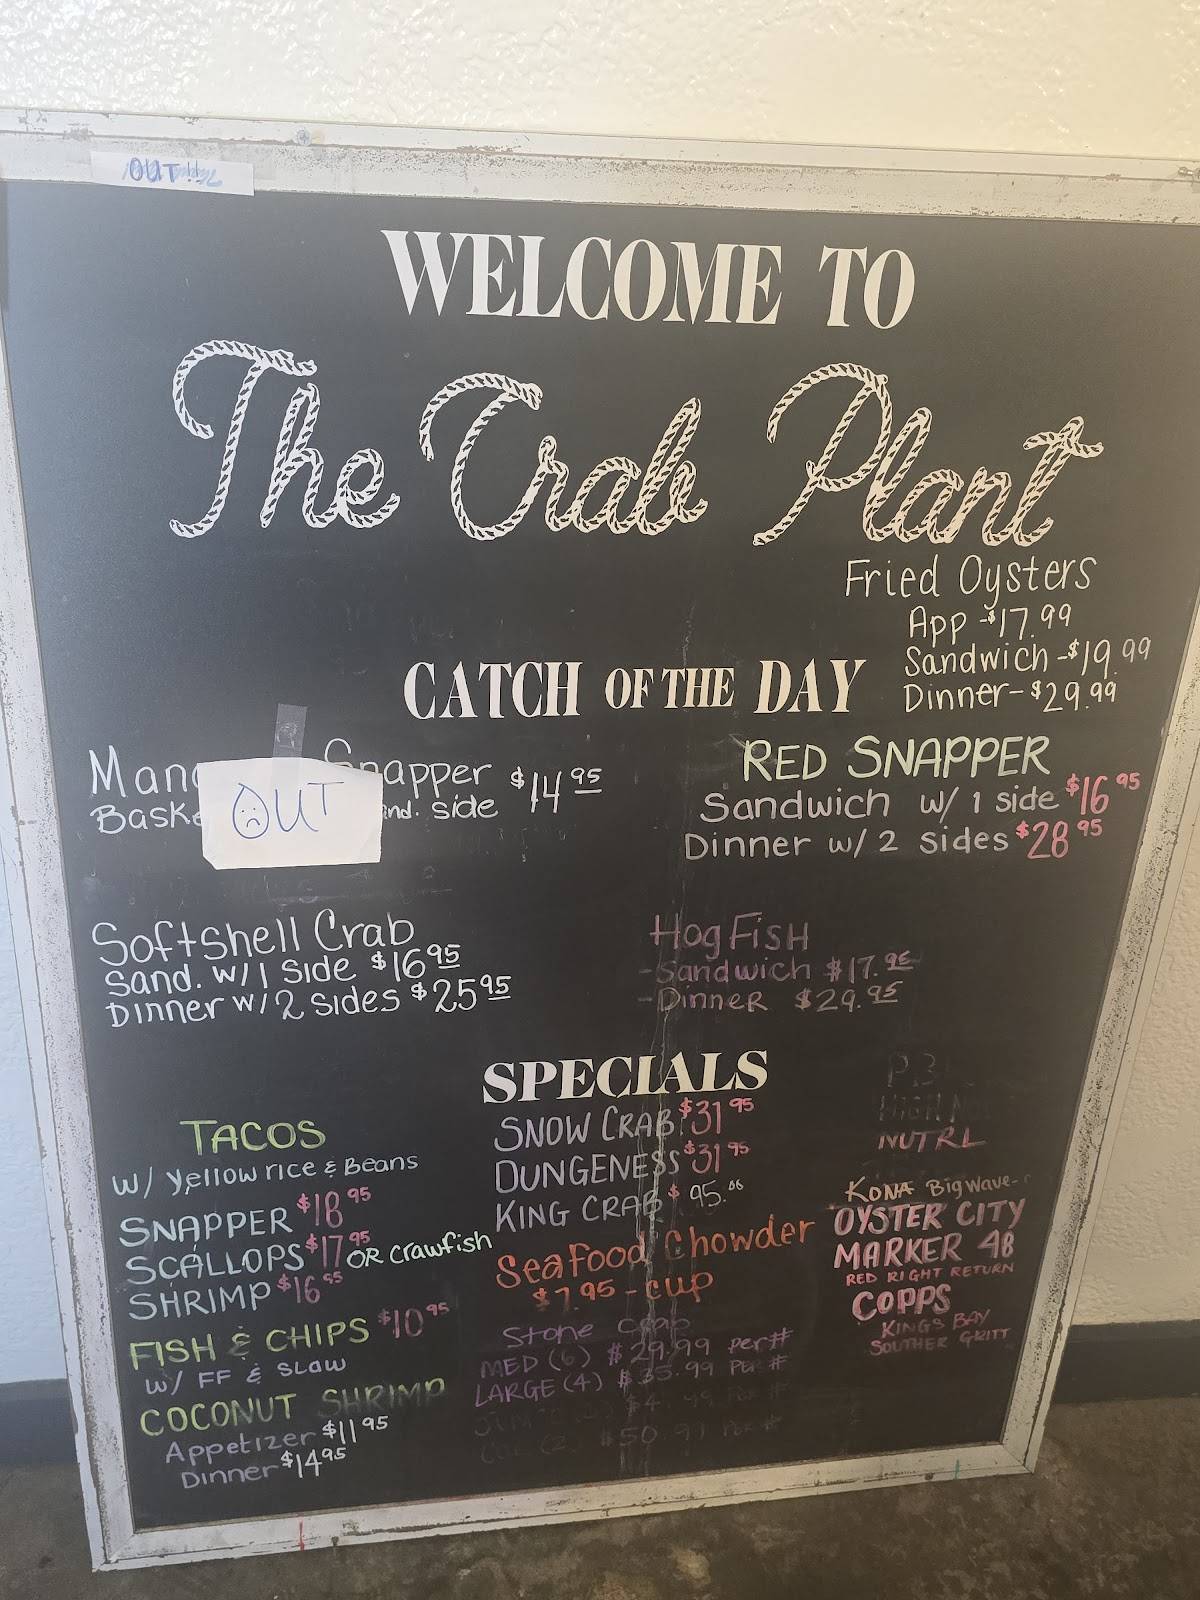 OUT
WELCOME TO
The Crab Plant
Fried Oysters
App - $17.99
Sandwich - $19.99
Dinner - $29.99
CATCH OF THE DAY
Snapper $14.95
OUT
side
RED SNAPPER
Sandwich w/ 1 side $16.95
Dinner w/ 2 sides $28.95
Softshell Crab
Sand. w/ 1 Side $16.95
Dinner w/ 2 sides $25.95
Hog Fish
- Sandwich $17.95
- Dinner $29.95
SPECIALS
TACOS
w/ Yellow rice & Beans
SNAPPER $18.95
SCALLOPS $17.95 OR Crawfish
SHRIMP $16.95
FISH & CHIPS $10.95
w/ FF & SLAW
COCONUT SHRIMP
Appetizer $11.95
Dinner $14.95
SNOW CRAB $31.95
DUNGENESS $31.95
KING CRAB $95.00
Seafood Chowder
$7.95 - cup
Stone Crab
MED (6) $29.99 per #
LARGE (4) $35.99 PER #
$50.91 Per #
NUTRL
KONA Big Wave
OYSTER CITY
MARKER 48
RED RIGHT RETURN
COPPS
KINGS BAY
SOUTHER GRITT